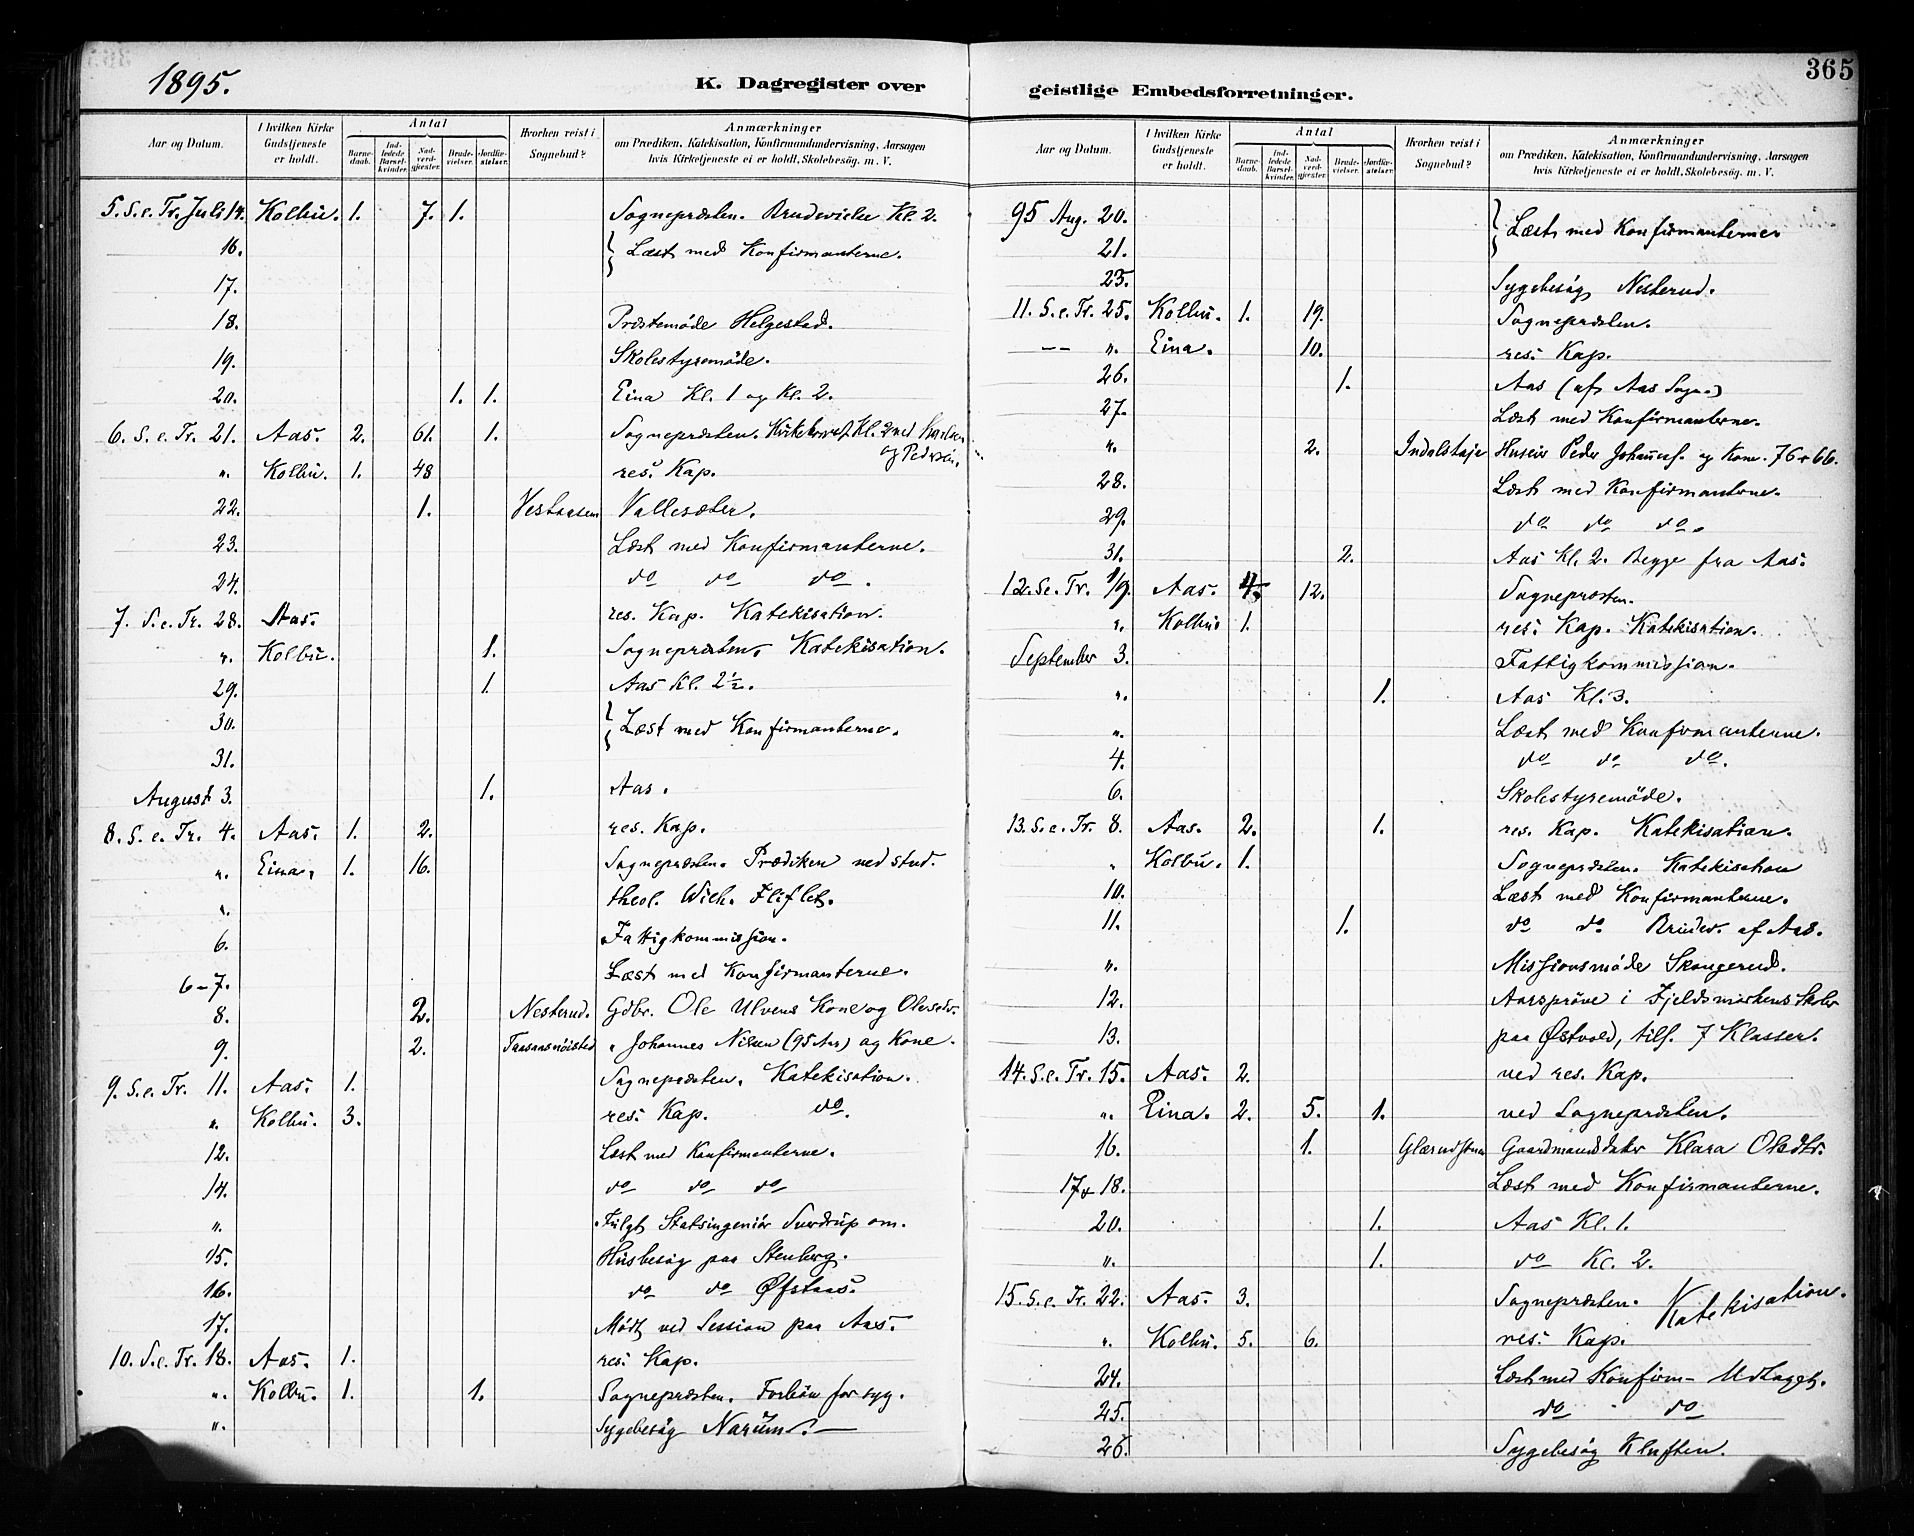 1895.
K. Dagregister over
Aar og Datum. I hvilken Kirke Gudstjeneste er holdt. Antal Barnedaab. Indledede Barselkvinder. Nadverdgjester. Brudevielser. Jordfæstelser. Hvorhen reist i Sognebud? Anmærkninger
om Prædiken, Katekisation, Konfirmandundervisning, Aarsagen
hvis Kirketjeneste ei er holdt, Skolebesög m. V.
5. S. e. Tr. Juli 14. Kolbu. 1. 7. 1. Sognepræsten. Brudevielse Kl. 2.
16. Læst med Konfirmanterne.
17.
18. Præstemöde Helgestad.
19. Skolestyremöde.
20. 1. 1. Eina Kl. 1 og Kl. 2.
6. S. e. Tr. 21. Aas. 2. 61. 1. Sognepræsten. Kl. 2 med
og Pedersen.
" Kolbu. 1. 48 res. Kap.
22. 1. Vestaasen Vallesæter.
23. Læst med Konfirmanterne.
24. do do do.
7. S. e. Tr. 28. Aas. res. Kap. Katekisation.
" Kolbu. 1. Sognepræsten. Katekisation.
29. 1. Aas Kl. 2½.
30. Læst med Konfirmanterne.
31.
August 3. 1. Aas.
8. S. e. Tr. 4. Aas. 1. 2. res. Kap.
" Eina. 1. 16. Sognepræsten. Prædiken ved stud.
" theol. Wilh. Fliflet.
6. Fattigkommission.
6-7. Læst med Konfirmanterne.
8. 2. Nesterud. Gdbr. Ole Ulvens Kone og
9. 2. " Johannes Nilsen (95 Aar) og Kone.
9. S. e. Tr. 11. Aas. 1. Sognepræsten. Katekisation.
" Kolbu. 3. res. Kap. do.
12. Læst med Konfirmanterne.
14. do do do
" Fulgt Statsingeniör Sverdrup om.
15. Husbesög paa Stenberg.
16. do do Øfstaas.
17. Mödt ved Session paa Aas.
10. S. e. Tr. 18. Aas. 1. res. Kap.
" Kolbu. 1. 1. Sognepræsten. Forbön for syg.
" Sygebesög Narum.
365
geistlige Embedsforretninger.
Aar og Datum. I hvilken Kirke Gudstjeneste er holdt. Antal Barnedaab. Indledede Barselkvinder. Nadverdgjester. Brudevielser. Jordfæstelser. Hvorhen reist i Sognebud? Anmærkninger
om Prædiken, Katekisation, Konfirmandundervisning, Aarsagen
hvis Kirketjeneste ei er holdt, Skolebesög m. V.
95 Aug. 20. Læst med Konfirmanterne
21.
23. Sygebesög Nesterud.
11. S. e. Tr. 25. Kolbu. 1. 19. Sognepræsten.
-- " Eina. 10. res. Kap.
26. 1. Aas (af Aas Sogn.)
27. Læst med Konfirmanterne.
" 2. Peder Johannes. og Kone. 76 + 66.
28. Læst med Konfirmanterne.
29. do do do.
31. 2. Aas Kl. 2. Begge fra Aas.
12. S. e. Tr. 1/9. Aas. 4. 12. Sognepræsten.
" Kolbu 1. res. Kap. Katekisation.
September 3. Fattigkommission.
" 1. Aas Kl. 3.
" Læst med Konfirmanterne.
4. do do do.
6. Skolestyremöde.
13. S. e. Tr. 8. Aas. 2. 1. res. Kap. Katekisation.
" Kolbu. 1. Sognepræsten. Katekisation
10. Læst med Konfirmanterne.
11. 1. do do. Brudev. af Aas.
" Missionsmöde Skongerud.
12. Aarspröve i Skoler
13. paa Østvold, tils. 7 Klasser.
14. S. e. Tr. 15. Aas. 2. ved res. Kap.
" Eina. 2. 5. 1. ved Sognepræsten.
16. 1. Klara Olsdtr.
17 + 18. Læst med Konfirmanterne.
20. 1. Aas Kl. 1.
" 1. do Kl. 2.
15. S. e. Tr. 22. Aas. 3. Sognepræsten. Katekisation.
" Kolbu. 5. 6. res. Kap.
24. Læst med Konfirm- Udtaget.
25. do do
26. Sygebesög Kluften.